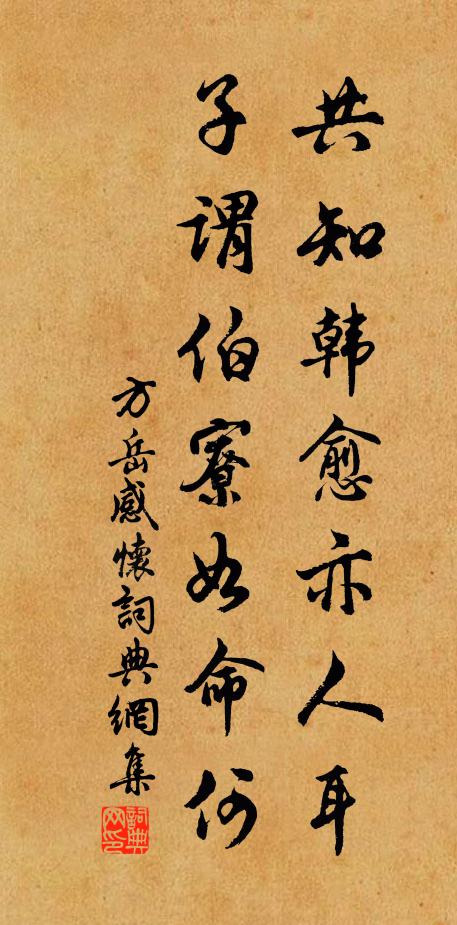 共知韩愈亦人耳
子谓伯寮如命何
方岳感懷詞典網集
詞典网印